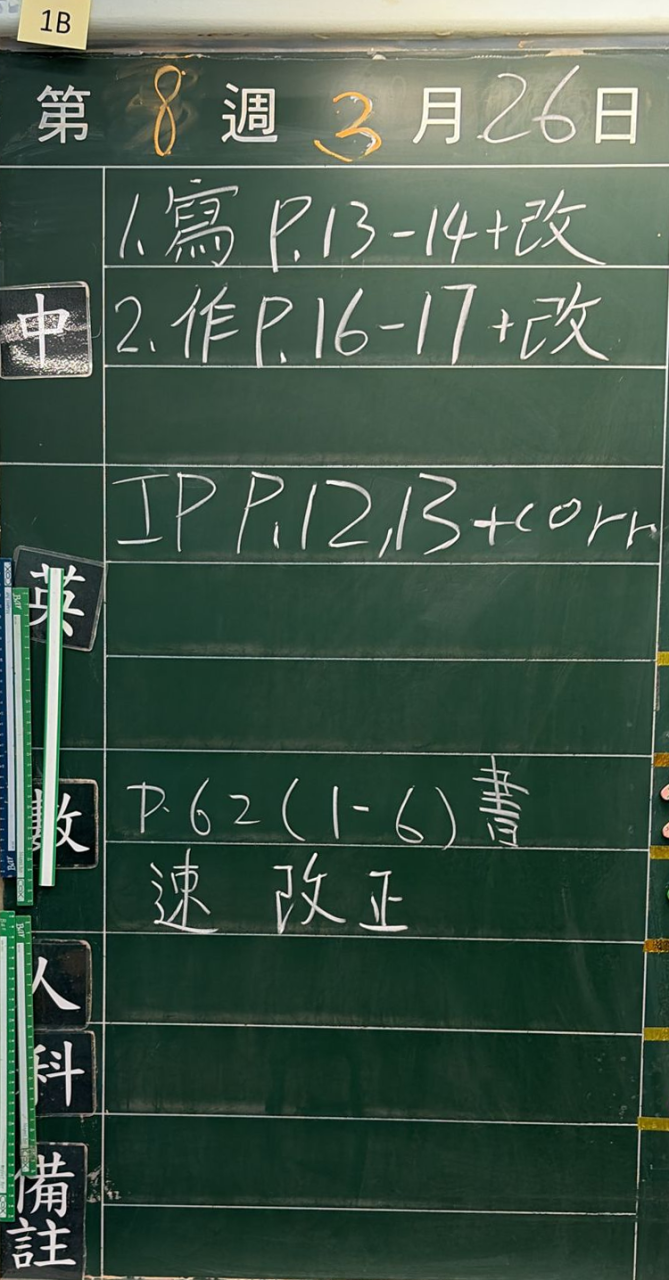 1B
第 8 週 3 月 26 日
1. 寫 P.13-14+改
中
2. 作 P.16-17+改
IP P.12,13+corr
英
數
P.62(1-6)書
速 改正
人
科
備註